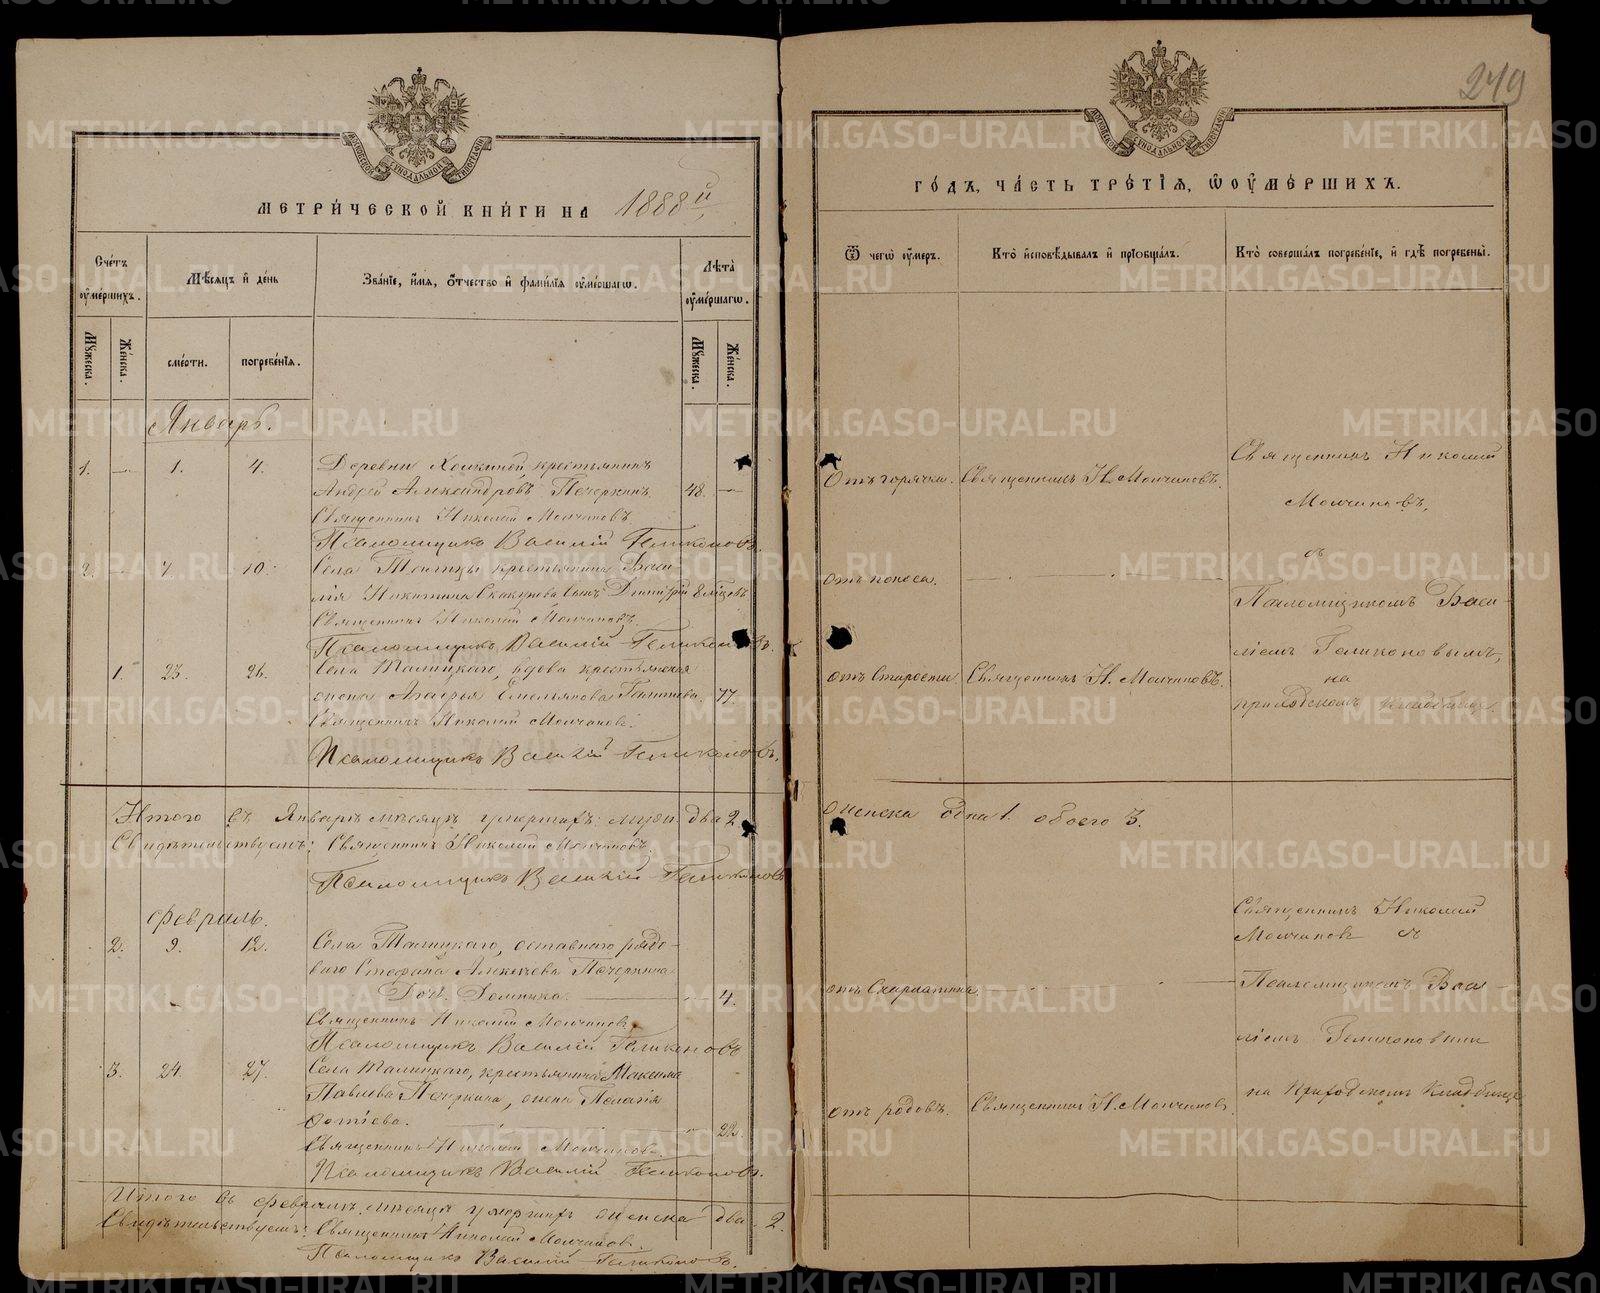 МЕТРИ́ЧЕСКОЙ КНИ́ГИ НА 1888й
Сче́тъ ѹ҆ме́ршихъ.
Мѣ́сяцъ и҆ де́нь
Зва́нїе, и҆́мя, ѻ҆́тчество и҆ фами́лїя ѹ҆ме́ршагѡ.
Лѣ́та ѹ҆ме́ршагѡ.
Мꙋ́жеска.
Же́нска.
сме́рти.
погребе́нїя.
Мꙋ́жеска.
Же́нска.
Январь.
1. — 1. 4. Деревни крестьянинъ
Андрей Александровъ Печеркинъ. 48. —
Священникъ Николай Молчановъ
Псаломщикъ Василій Геликоновъ.
2. 7. 10. Села Талицы крестьянина Васи-
лія Никитина сынъ Димитрій 8 мѣсяцевъ
Священникъ Николай Молчановъ.
Псаломщикъ Василій Геликоновъ.
1. 23. 26. Села Талицкаго, вдова крестьянская
жена Агафья Емельянова 77.
Священникъ Николай Молчановъ.
Псаломщикъ Василій Геликоновъ.
Итого въ Январѣ мѣсяцѣ умершихъ: муж. два 2
Свидѣтельствуемъ: Священникъ Николай Молчановъ.
Псаломщикъ Василій Геликоновъ
Февраль.
2. 9. 12. Села Талицкаго, отставнаго рядо-
ваго Стефана Алексѣева Печеркина
Дочь Домника. 4.
Священникъ Николай Молчановъ
Псаломщикъ Василій Геликоновъ
3. 24. 27. Села Талицкаго, крестьянина Максима
Павлова Печеркина, жена Пелагія
Фотіева. 22.
Священникъ Николай Молчановъ.
Псаломщикъ Василій Геликоновъ.
Итого въ Февралѣ мѣсяцѣ умершихъ женска два 2.
Свидѣтельствуемъ: Священникъ Николай Молчановъ.
Псаломщикъ Василій Геликоновъ.
249
ГО́ДЪ, ЧА́СТЬ ТРЕ́ТЇЯ, Ѡ ОУМЕ́РШИХЪ.
Ѿ чегѡ ѹ҆́меръ.
Кто̀ и҆сповѣ́дывалъ и҆ прїѡбща́лъ.
Кто̀ соверша́лъ погребе́нїе, и҆ гдѣ̀ погребены̀.
Отъ горячки. Священникъ Н. Молчановъ.
Священникъ Николай
Молчановъ,
съ
отъ поноса.
Псаломщикомъ Васи-
ліемъ Геликоновымъ,
отъ Старости. Священникъ Н. Молчановъ.
на
приходскомъ кладбище.
женска одна 1. обоего 3.
Священникъ Николай
Молчановъ съ
отъ Скарлатины.
Псаломщикомъ Васи-
ліемъ Геликоновымъ
отъ родовъ. Священникъ Н. Молчановъ.
на Приходскомъ Кладбище
METRIKI.GASO-URAL.RU